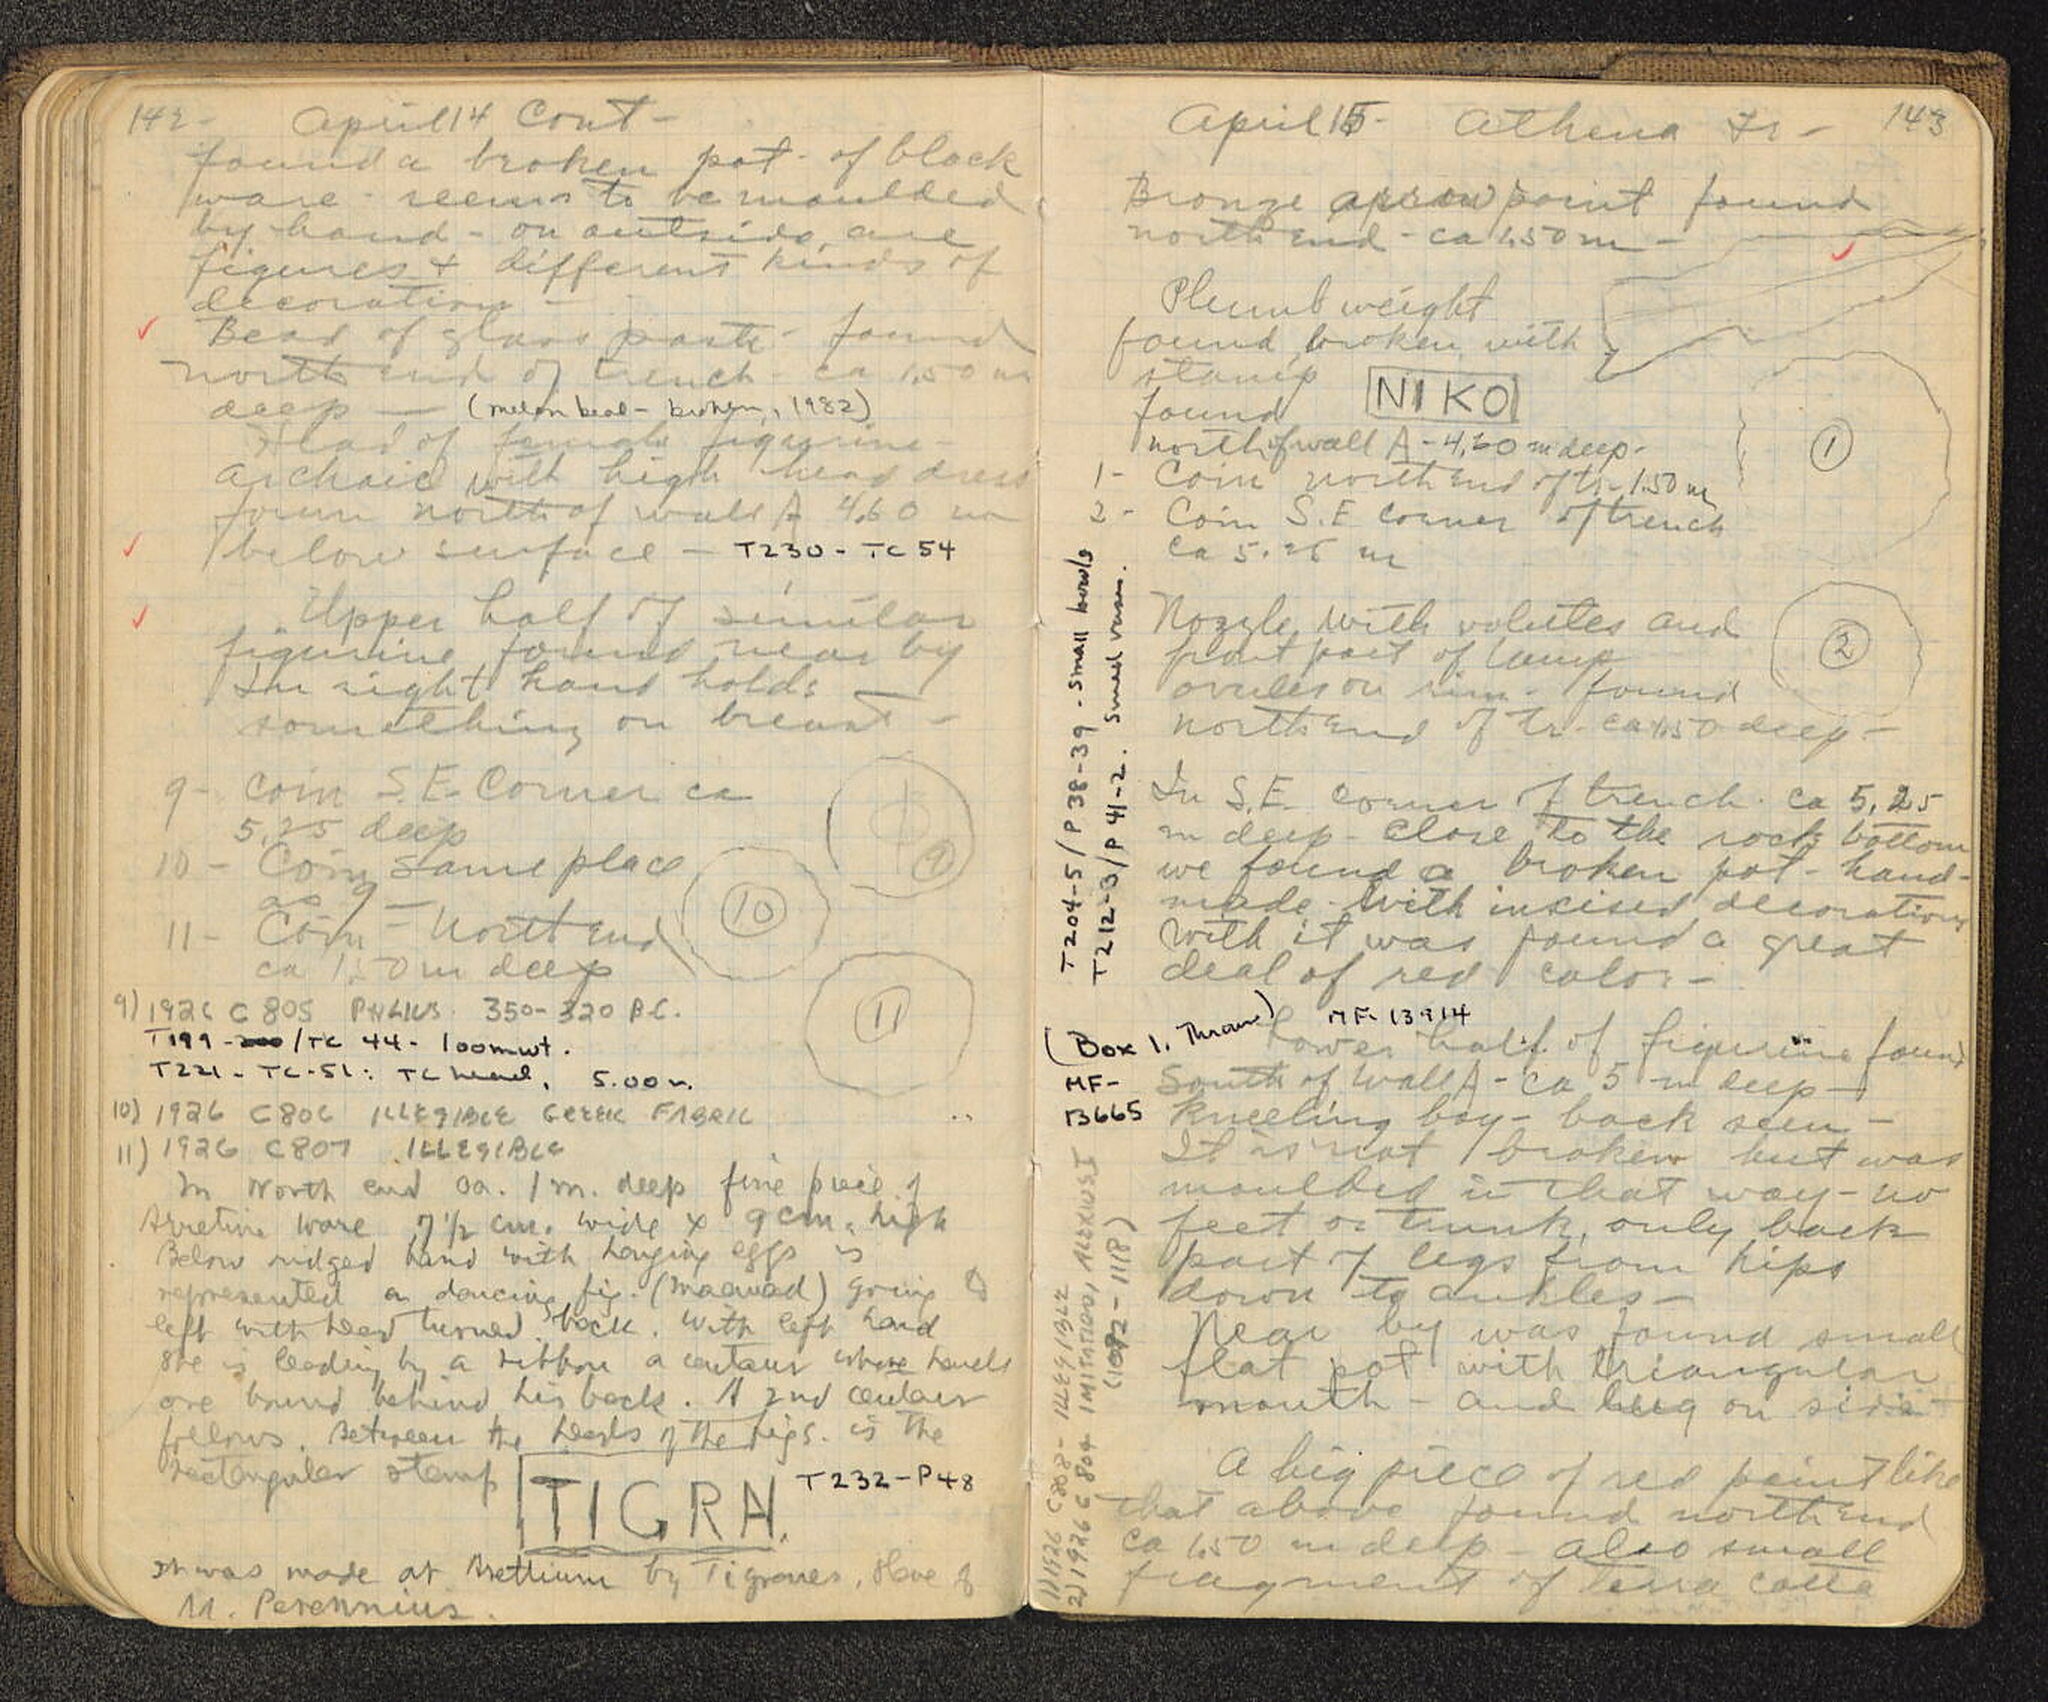 142-
April 14 Cont-
found a broken pot- of black
ware- seems to be moulded
by hand- on outside are
figures + different kinds of
decoration-
Bead of glass paste- found
north end of trench- ca 1,50 m
deep — (melon bead- broken, 1982)
Head of female figurine-
archaic with high head dress
foun north of wall A 4,60 m
below surface- T230 - TC 54
Upper half of similar
figurine found near by
In right hand holds
something on breast-
9- Coin S.E. Corner ca
5,25 deep
10- Coin same place
as 9-
11- Coin- North end
ca 1,50 m deep
9
10
11
9) 1926 C 805 PHLIUS. 350-320 B.C.
T199 /TC 44- loomwt.
T221- TC-51: TC head, 5.00 m.
10) 1926 C806 ILLEGIBLE GREEK FABRIC
11) 1926 C807 ILLEGIBLE
In North end ca. 1 m. deep fine piece of
Arretine ware 7 1/2 cm. wide x 9 cm. high
Below ridged band with hanging eggs is
represented a dancing fig. (maenad) going to
left with head turned back. With left hand
she is leading by a ribbon a centaur whose hands
are bound behind his back. A 2nd centaur
follows. Between the heads of the figs. is the
rectangular stamp TIGRA. T232-P48
It was made at Arettium by Tigranes, slave of
M. Perennius.
April 15- Athena Tr- 143
Bronze arrow point found
north end- ca 1,50 m-
Plumb weight
found broken with
stamp NIKO
found
north of wall A- 4,60 m deep-
1- Coin north end of tr- 1.50 m
2- Coin S.E corner of trench
ca 5.25 m
1
2
Nozzle with volutes and
front part of lamp
ovules on rim- found
north end of tr- ca 1,50 deep-
In S.E. corner of trench. ca 5,25
m deep- close to the rock bottom
we found a broken pot- hand-
made- with incised decoration
with it was found a great
deal of red color-
T204-5/P 38-39 - small bowls
T212-3/P 41-2. small vases.
(Box 1. Throw) MF-13914
Lower half of figurine found
South of Wall A- ca 5 m deep-
MF-
13665
Kneeling boy- back seen-
It is not broken but was
moulded in that way- no
feet or trunk, only back
part of legs from hips
down to ankles-
Near by was found small
flat pot with triangular
mouth- and lug on side-
A big piece of red paint like
that above found north end
ca 1,50 m deep- also small
fragment of terra cotta
1) 1926 C808- ILLEGIBLE
2) 1926 C804 IMITATION, ALEXIUS I
(1092-1118)